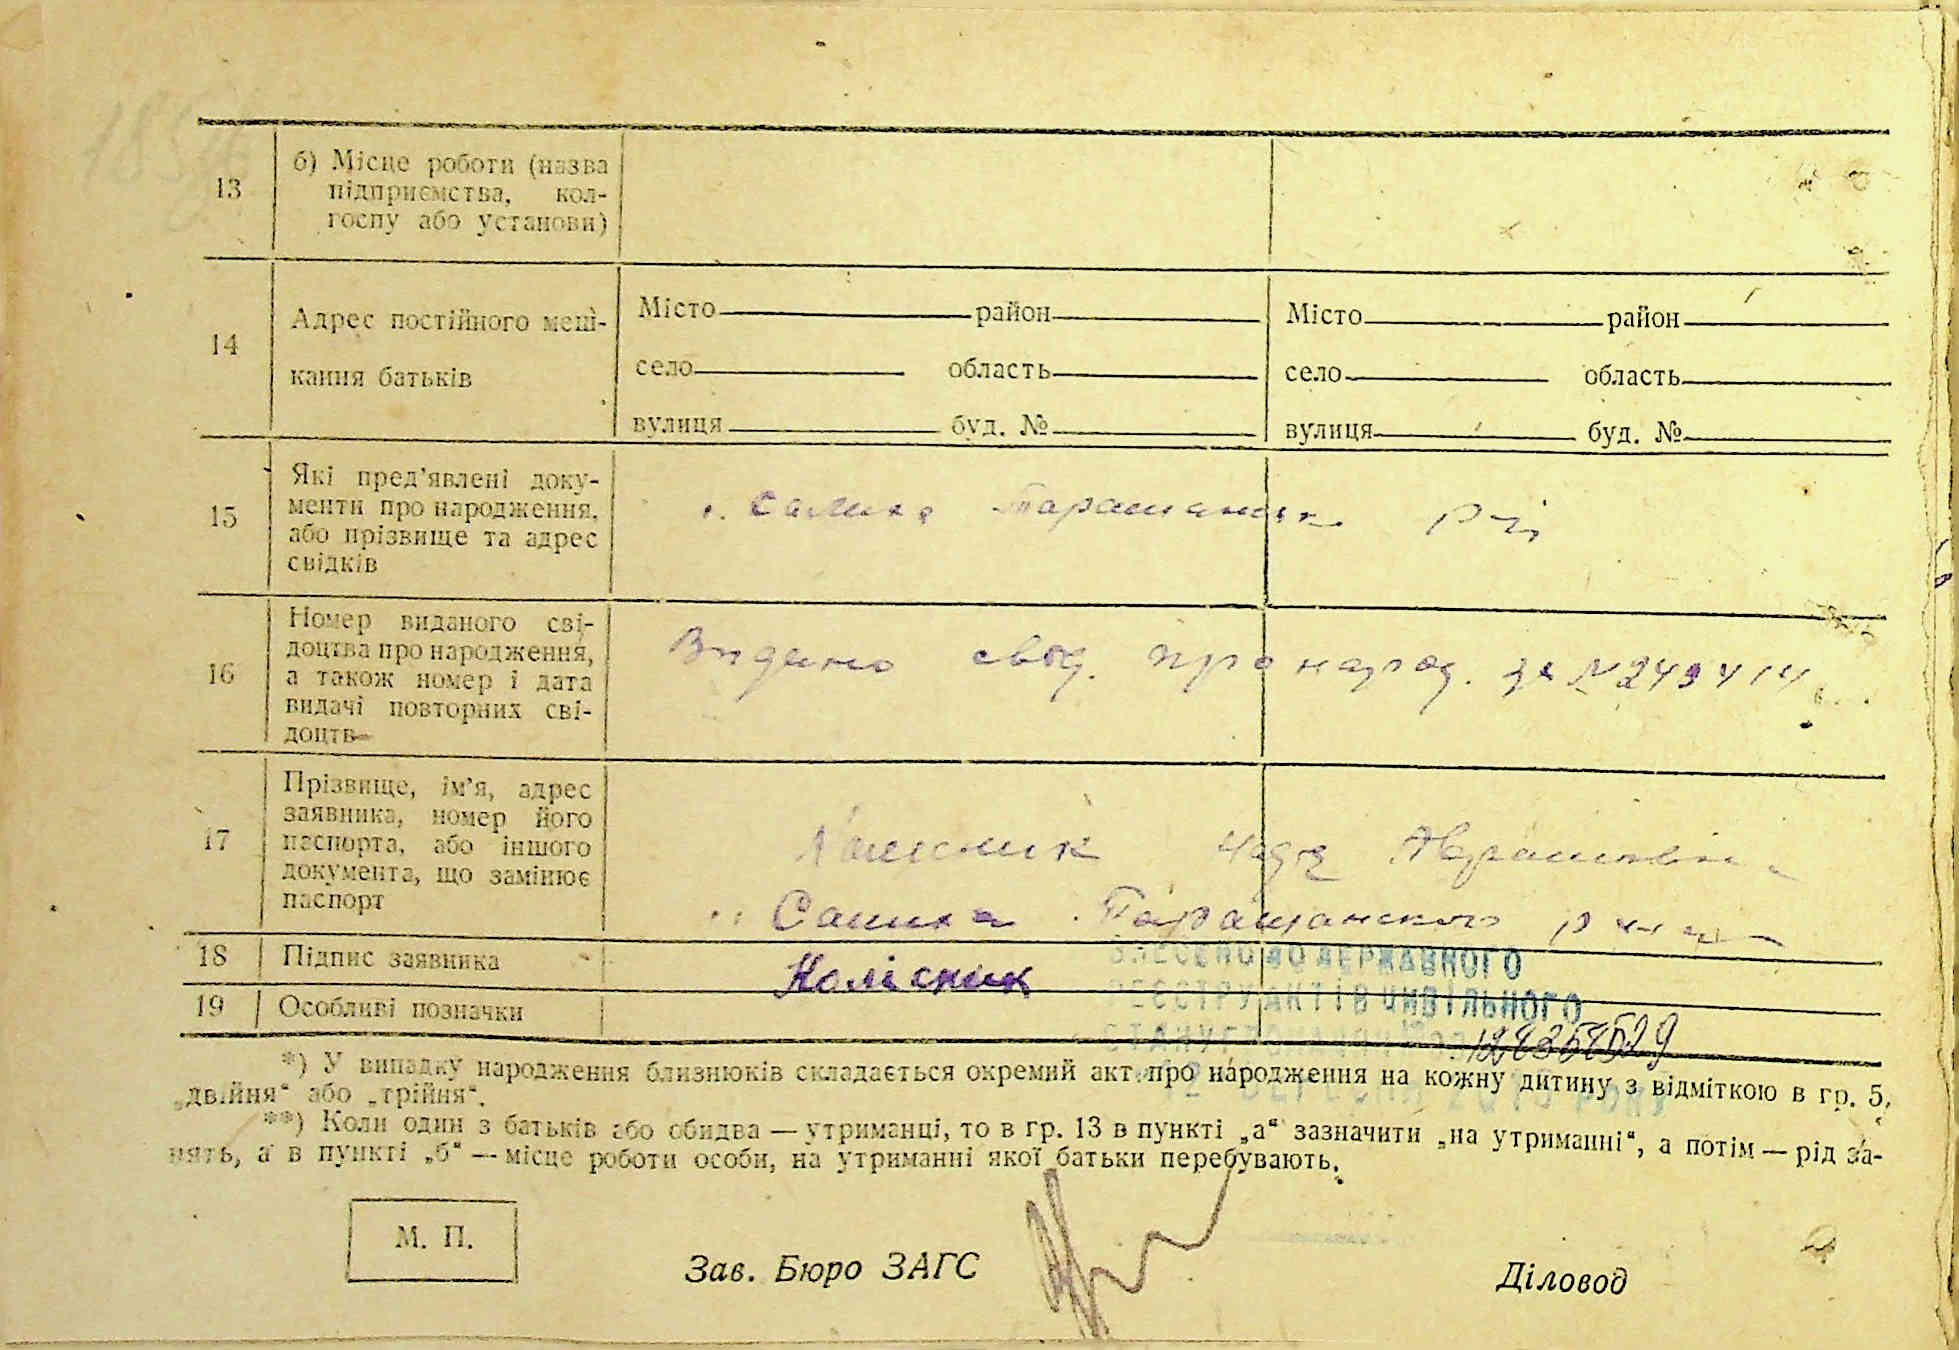 13
б) Місце роботи (назва
підприємства, кол-
госпу або установи)
14
Адрес постійного меш-
кання батьків
Місто район
село область
вулиця буд. №
Місто район
село область
вулиця буд. №
15
Які пред'явлені доку-
менти про народження,
або прізвище та адрес
свідків
16
Номер виданого сві-
доцтва про народження,
а також номер і дата
видачі повторних сві-
доцтв
Видано свід. про народ. за №
17
Прізвище, ім'я, адрес
заявника, номер його
паспорта, або іншого
документа, що замінює
паспорт
Таращанского
18
Підпис заявника
Колісник
19
Особливі позначки
ВНЕСЕНО ДО ДЕРЖАВНОГО
РЕЄСТРУ АКТІВ ЦИВІЛЬНОГО
*) У випадку народження близнюків складається окремий акт про народження на кожну дитину з відміткою в гр. 5,
„двійня“ або „трійня“.
**) Коли один з батьків або обидва — утриманці, то в гр. 13 в пункті „а“ зазначити „на утриманні“, а потім — рід за-
нять, а в пункті „б“ — місце роботи особи, на утриманні якої батьки перебувають.
М. П.
Зав. Бюро ЗАГС
Діловод